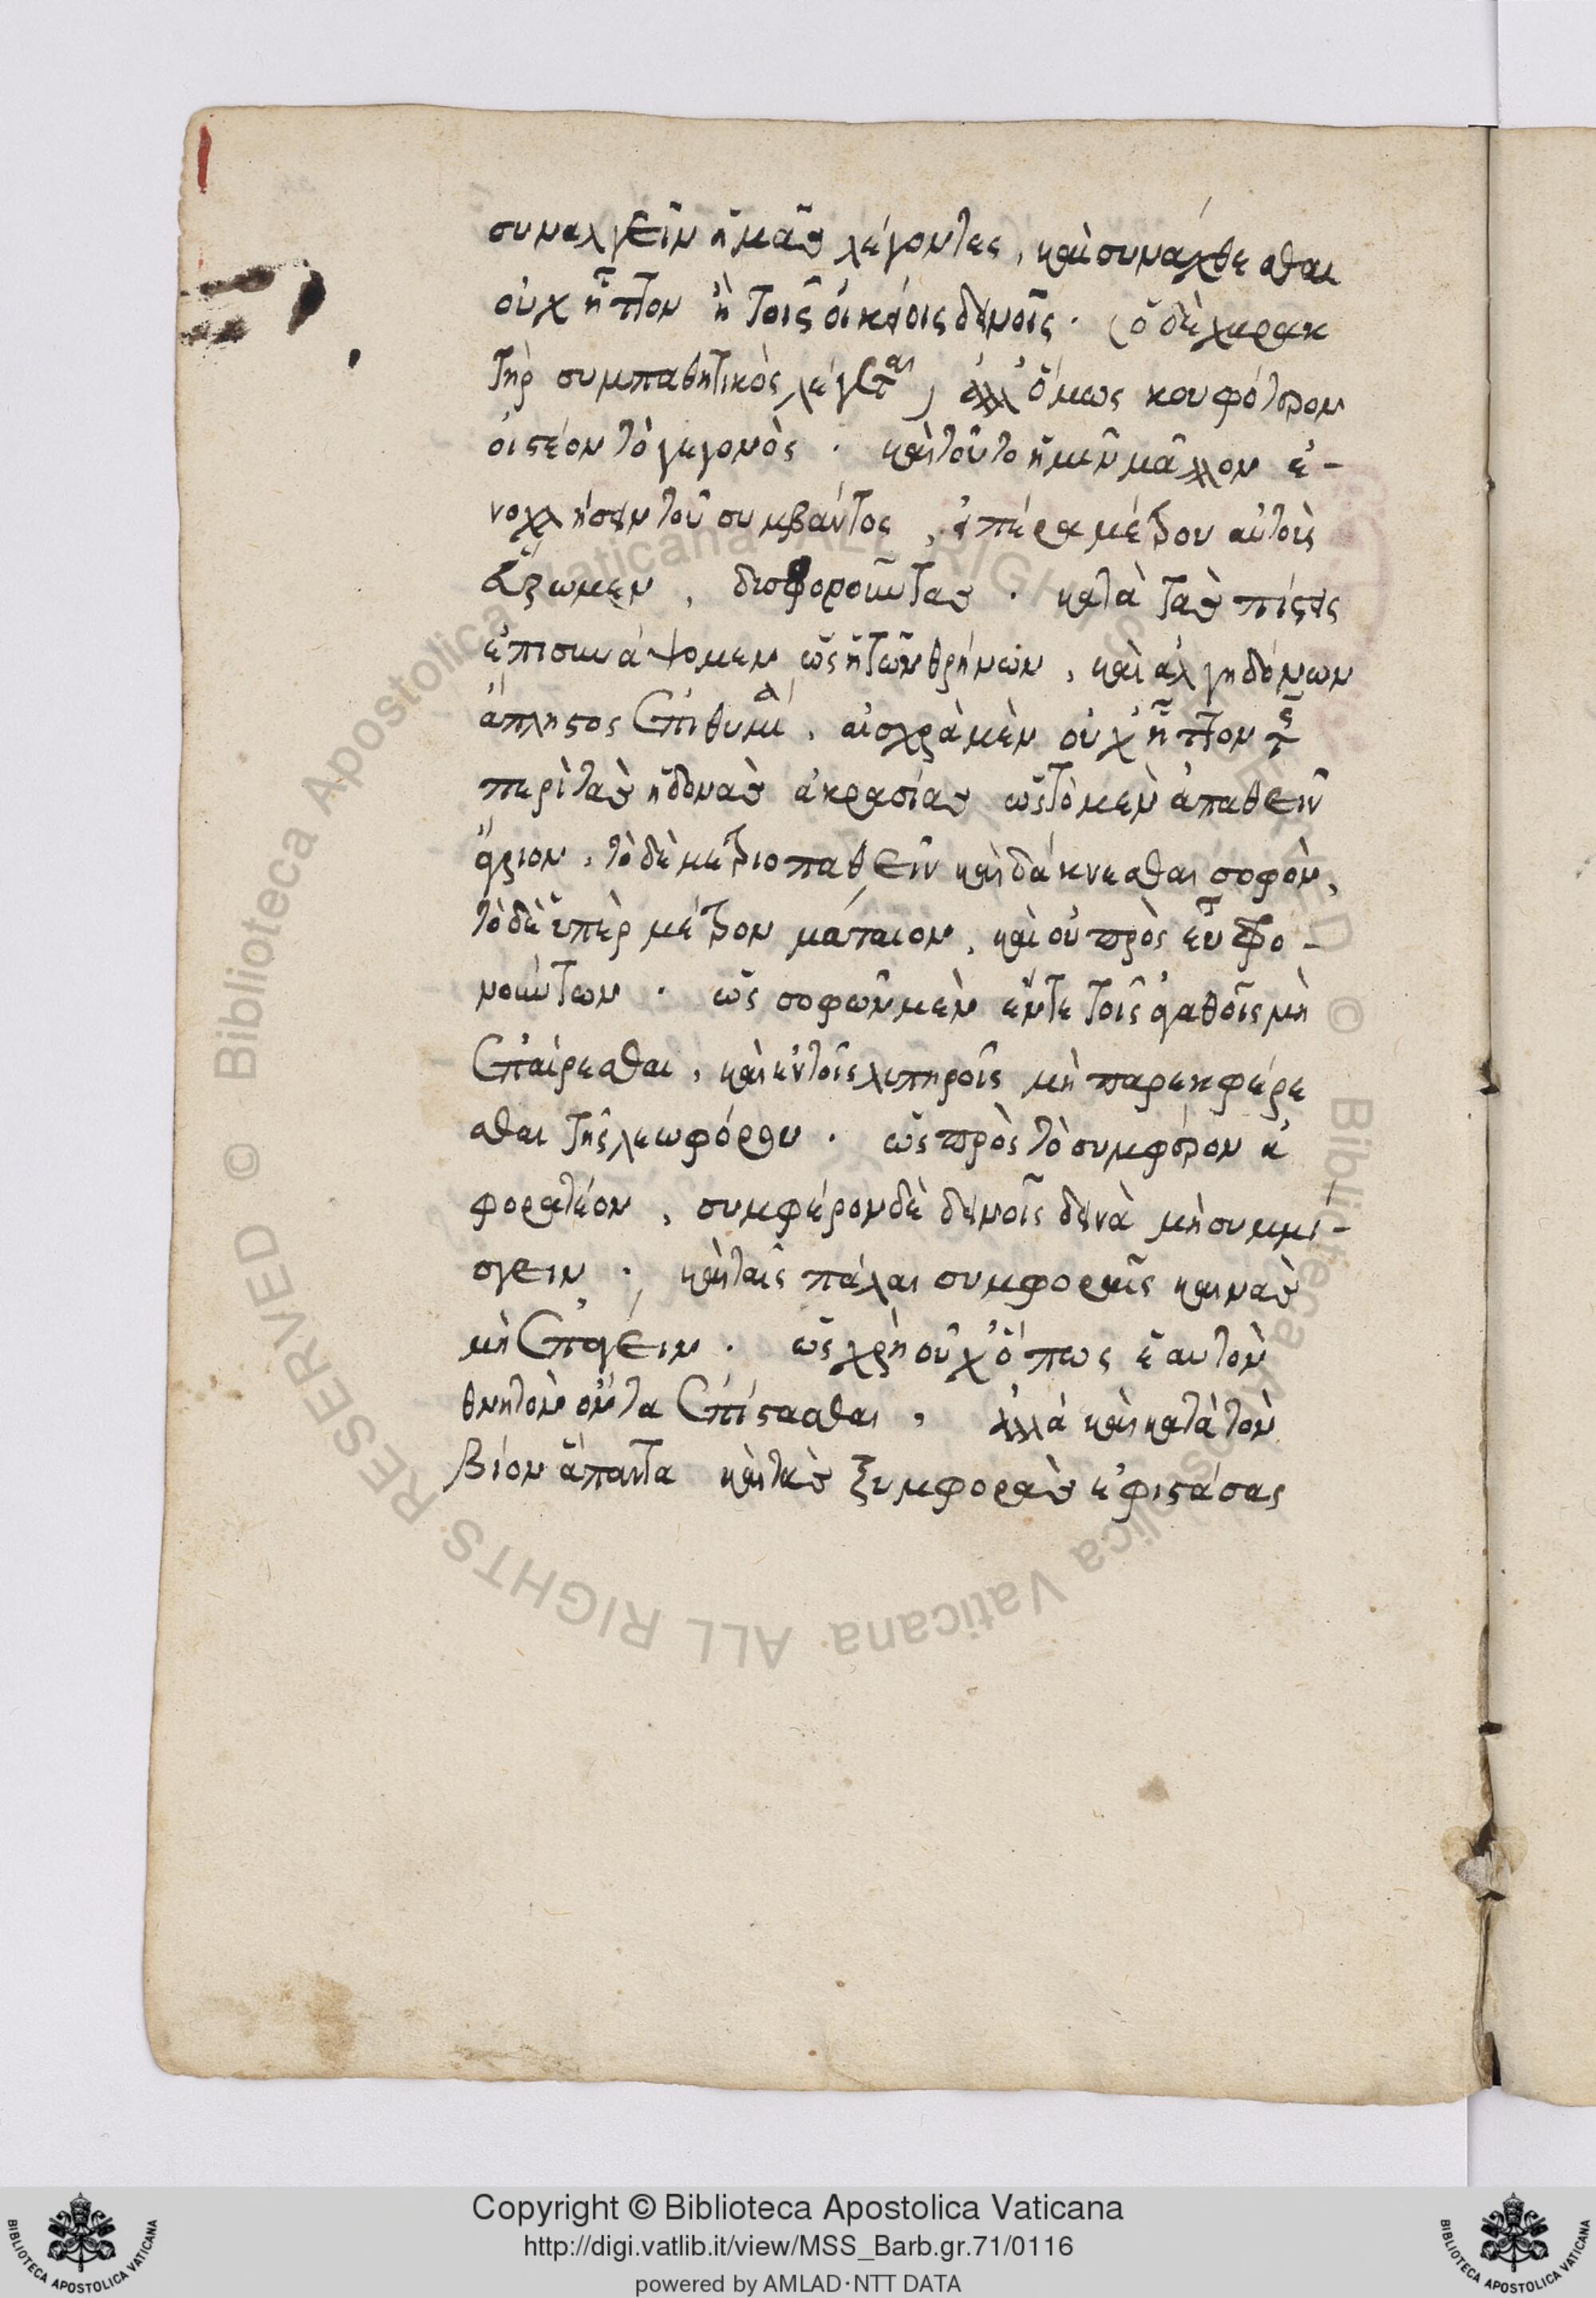 συναλγεῖν ἡμᾶς λέγοντες, καὶ συνάχθεσθαι
οὐχ ἧττον ἢ τοῖς οἰκείοις δεινοῖς · (ὁ δὲ χαρακ
τὴρ συμπαθητικὸς λέγεται) ἀλλ' ὅμως κουφότερον
οἰστέον τὸ γεγονὸς · καὶ τοῦτο ἡμεῖν μᾶλλον ἐ-
νοχλήσειν τοῦ συμβάντος, εἰ πέρα μέτρου αὐτοὺς
ἕξωμεν, δυσφοροῦντας · κατὰ τὰς πίστεις
ἐπισυνάψομεν, ὡς ἡ τῶν θρήνων, καὶ ἀλγηδόνων
ἄπληστος ἐπιθυμία, αἰσχρὰ μὲν οὐχ ἧττον τῆς
περὶ τὰς ἡδονὰς ἀκρασίας ὡς τὸ μὲν ἀπαθεῖν
ἄγριον, τὸ δὲ μετριοπαθεῖν καὶ δάκνεσθαι σοφὸν,
τὸ δὲ ὑπὲρ μέτρον μάταιον, καὶ οὐ πρὸς εὖ φρο-
νούντων · ὡς σοφῶν μὲν ἔν τε τοῖς ἀγαθοῖς μὴ
ἐπαίρεσθαι, καὶ ἐν τοῖς λυπηροῖς μὴ παρεκφέρε
σθαι τῆς λεωφόρου · ὡς πρὸς τὸ συμφέρον ἀ
φορατέον, συμφέρον δὲ δεινοῖς δεινὰ μὴ συμμί-
σγειν · καὶ ταῖς πάλαι συμφοραῖς καινὰς
μὴ ἐπάγειν · ὡς χρὴ οὐχ ὅπως ἑαυτὸν
θνητὸν ὄντα ἐπίστασθαι, ἀλλὰ καὶ κατὰ τὸν
βίον ἅπαντα καὶ τὰς ξυμφορὰς ἐφιστάσας
Copyright © Biblioteca Apostolica Vaticana
http://digi.vatlib.it/view/MSS_Barb.gr.71/0116
powered by AMLAD·NTT DATA
BIBLIOTECA APOSTOLICA VATICANA
BIBLIOTECA APOSTOLICA VATICANA
© Biblioteca Apostolica Vaticana ALL RIGHTS RESERVED © Biblioteca Apostolica Vaticana ALL RIGHTS RESERVED